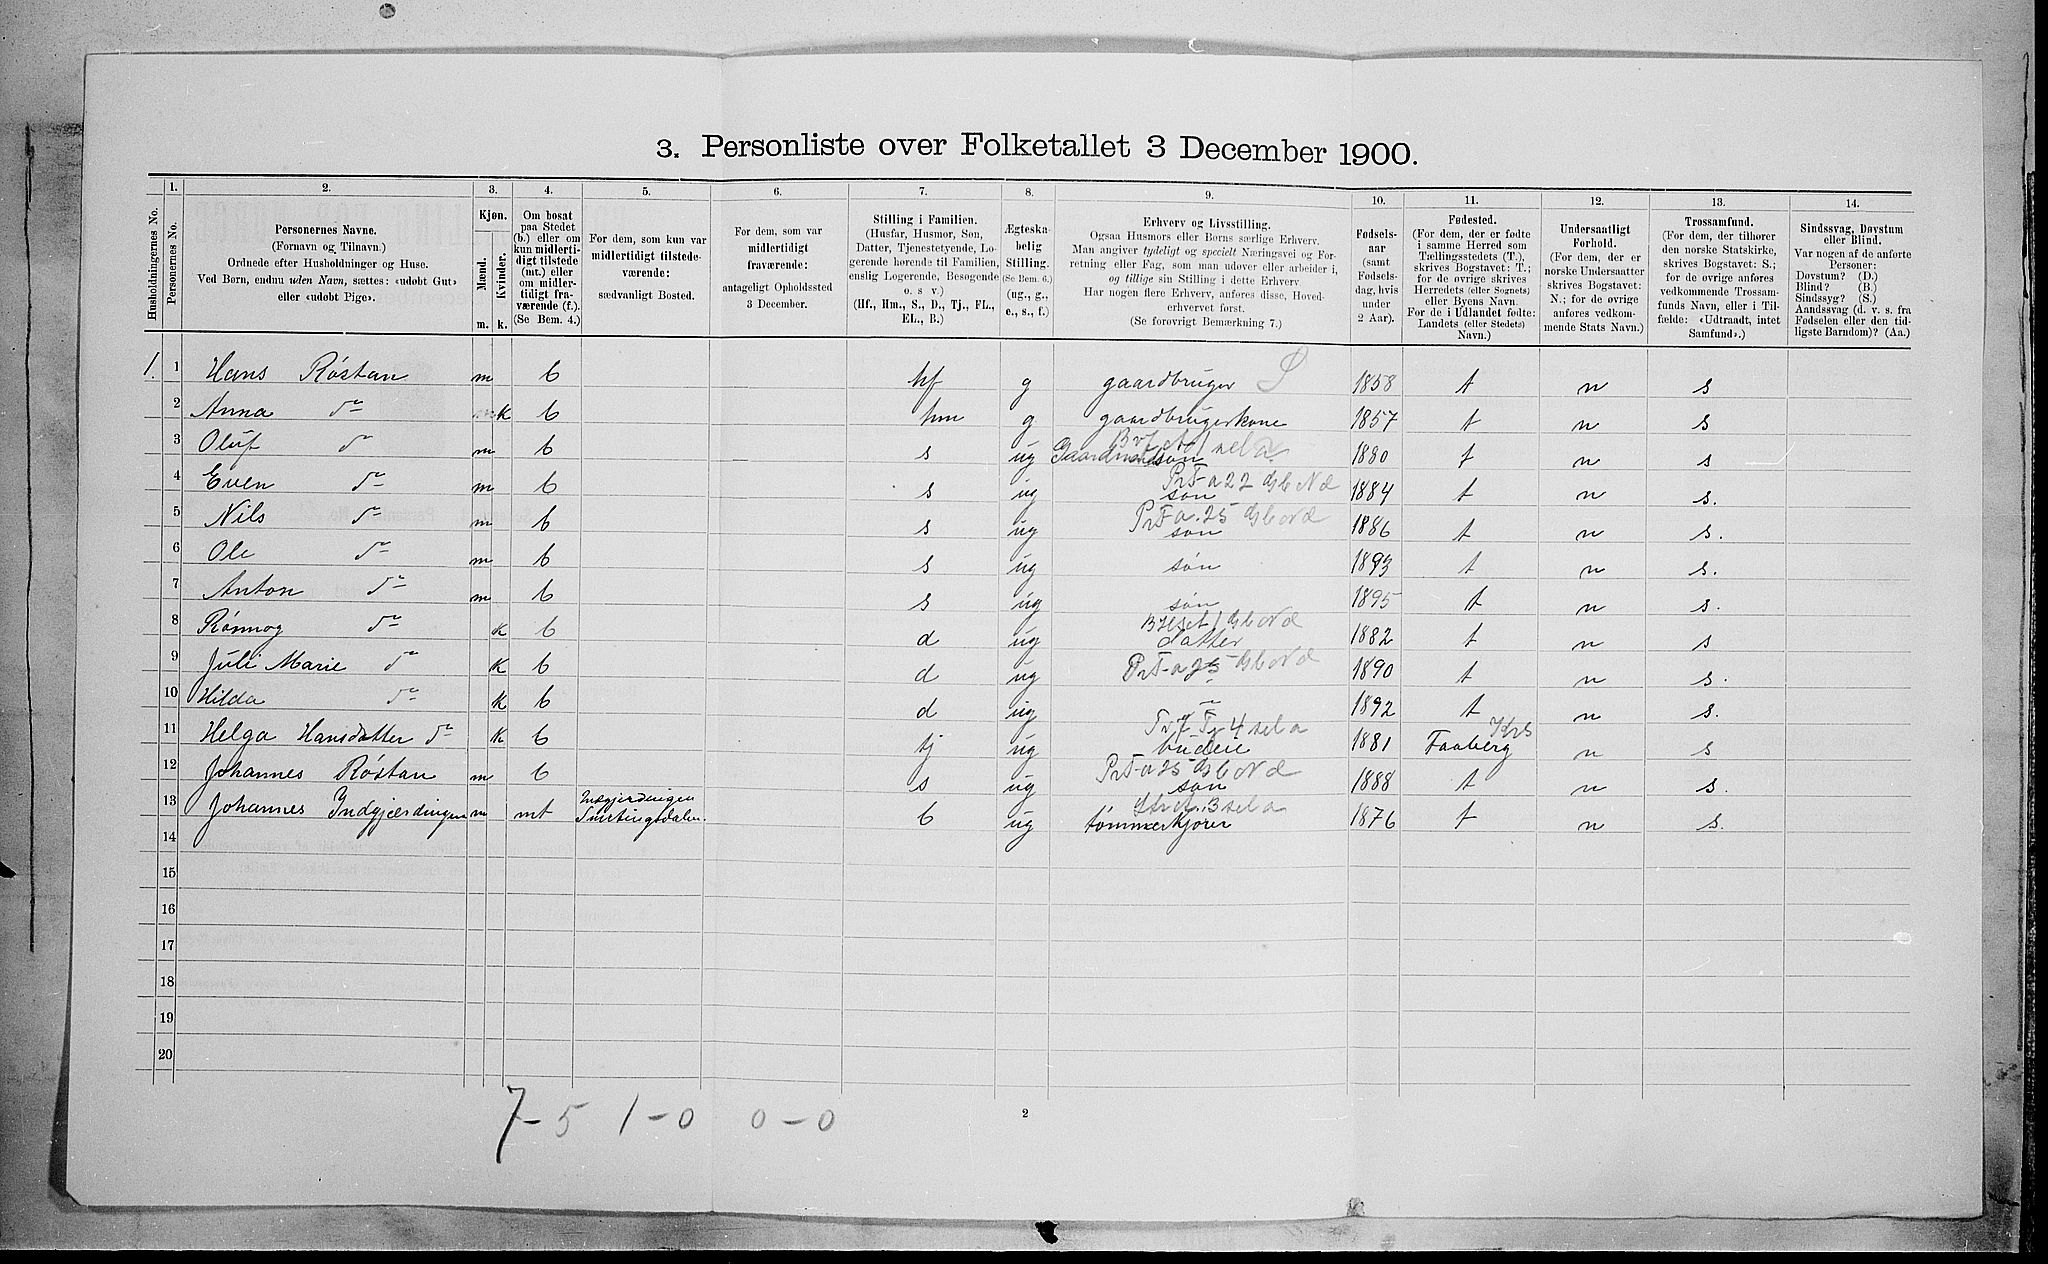 3. Personliste over Folketallet 3 December 1900.
Husholdningernes No.
1.
Personernes No.
2.
Personernes Navne.
(Fornavn og Tilnavn.)
Ordnede efter Husholdninger og Huse.
Ved Børn, endnu uden Navn, sættes: «udøbt Gut»
eller «udøbt Pige».
3.
Kjøn.
Mænd.
Kvinder.
m. k.
4.
Om bosat
paa Stedet
(b.) eller om
kun midlerti-
digt tilstede
(mt.) eller
om midler-
tidigt fra-
værende (f.).
(Se Bem. 4.)
5.
For dem, som kun var
midlertidigt tilstede-
værende:
sædvanligt Bosted.
6.
For dem, som var
midlertidigt
fraværende:
antageligt Opholdssted
3 December.
7.
Stilling i Familien.
(Husfar, Husmor, Søn,
Datter, Tjenestetyende, Lo-
gerende hørende til Familien,
enslig Logerende, Besøgende
o. s. v.)
(Hf., Hm., S., D., Tj., FL.,
EL., B.)
8.
Ægteska-
belig
Stilling.
(Se Bem. 6.)
(ug., g.,
e., s., f.)
9.
Erhverv og Livsstilling.
Ogsaa Husmors eller Børns særlige Erhverv.
Man angiver tydeligt og specielt Næringsvei og For-
retning eller Fag, som man udøver eller arbeider i,
og tillige sin Stilling i dette Erhverv.
Har nogen flere Erhverv, anføres disse, Hoved-
erhvervet først.
(Se forøvrigt Bemærkning 7.)
10.
Fødsels-
aar
(samt
Fødsels-
dag, hvis
under
2 Aar).
11.
Fødested.
(For dem, der er fødte
i samme Herred som
Tællingsstedets (T.),
skrives Bogstavet: T.;
for de øvrige skrives
Herredets (eller Sognets)
eller Byens Navn.
For de i Udlandet fødte:
Landets (eller Stedets)
Navn.)
12.
Undersaatligt
Forhold.
(For dem, der er
norske Undersaatter
skrives Bogstavet:
N.; for de øvrige
anføres vedkom-
mende Stats Navn.)
13.
Trossamfund.
(For dem, der tilhører
den norske Statskirke,
skrives Bogstavet: S.;
for de øvrige anføres
vedkommende Trossam-
funds Navn, eller i Til-
fælde: «Udtraadt, intet
Samfund».)
14.
Sindssvag, Døvstum
eller Blind.
Var nogen af de anførte
Personer:
Døvstum? (D.)
Blind? (B.)
Sindssyg? (S.)
Aandssvag (d. v. s. fra
Fødselen eller den tid-
ligste Barndom)? (Aa.)
1. 1 Hans Røstan m b hf g gaardbruger S 1858 t n s
2 Anna do k b hm g gaardbrugerkone 1857 t n s
3 Oluf do m b s ug søn 1880 t n s
4 Even do m b s ug PrF-a 22 Gb Nd søn 1884 t n s.
5 Nils do m b s ug PrF a. 25 Gb Nd søn 1886 t n s.
6 Ole do m b s ug søn 1893 t n s.
7 Anton do m b s ug søn 1895 t n s.
8 Rønnog do k b d ug datter 1882 t n s
9 Juli Marie do k b d ug PrF-a 25 Gb Nd 1890 t n s.
10 Hilda do k b d ug 1892 t n s.
11 Helga Hansdatter do k b tj ug budeie 1881 Faaberg n s
12 Johannes Røstan m b s ug PrF-a 25 Gb Nd søn 1888 t n s.
13 Johannes Indgjærdingen m mt b ug tømmerkjører 1876 t n s.
14
15
16
17
18
19
20
7-5 1-0 0-0
2